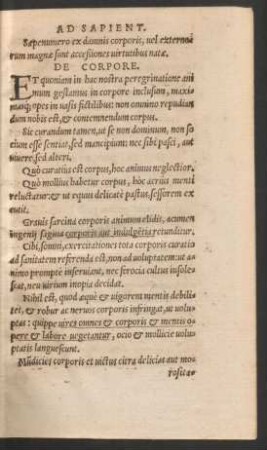 AD SAPIENT.
Sæpenumero ex damnis corporis, uel externorum
magnæ sunt accessiones uirtutibus natæ.
DE CORPORE.
ET quoniam in hac nostra peregrinatione animum
gestamus in corpore inclusum, maximasq; opes
in uasis fictilibus: non omnino repudiandum
nobis est, & contemnendum corpus.
Sic curandum tamen, ut se non dominum, non socium
esse sentiat, sed mancipium: nec sibi pasci, aut
uiuere, sed alteri.
Quò curatius est corpus, hoc animus neglectior.
Quò mollius habetur corpus, hoc acrius menti
reluctatur: & ut equus delicatè pastus, sessorem excutit.
Grauis sarcina corporis animum elidit, acumen
ingenij sagina corporis aut indulgētia retunditur.
Cibi, somni, exercitationes tota corporis curatio
ad sanitatem referenda est, non ad uoluptatem: ut animo
promptè inseruiant, nec ferocia cultus insolescat,
neu uirium inopia decidat.
Nihil est, quod æquè & uigorem mentis debilitet,
& robur ac neruos corporis infringat, ut uoluptas:
quippe uires omnes & corporis & mentis opere
& labore uegetantur, ocio & mollicie uoluptatis
languescunt.
Mūdicies corporis et uictus citra delicias aut mo-
rosita-